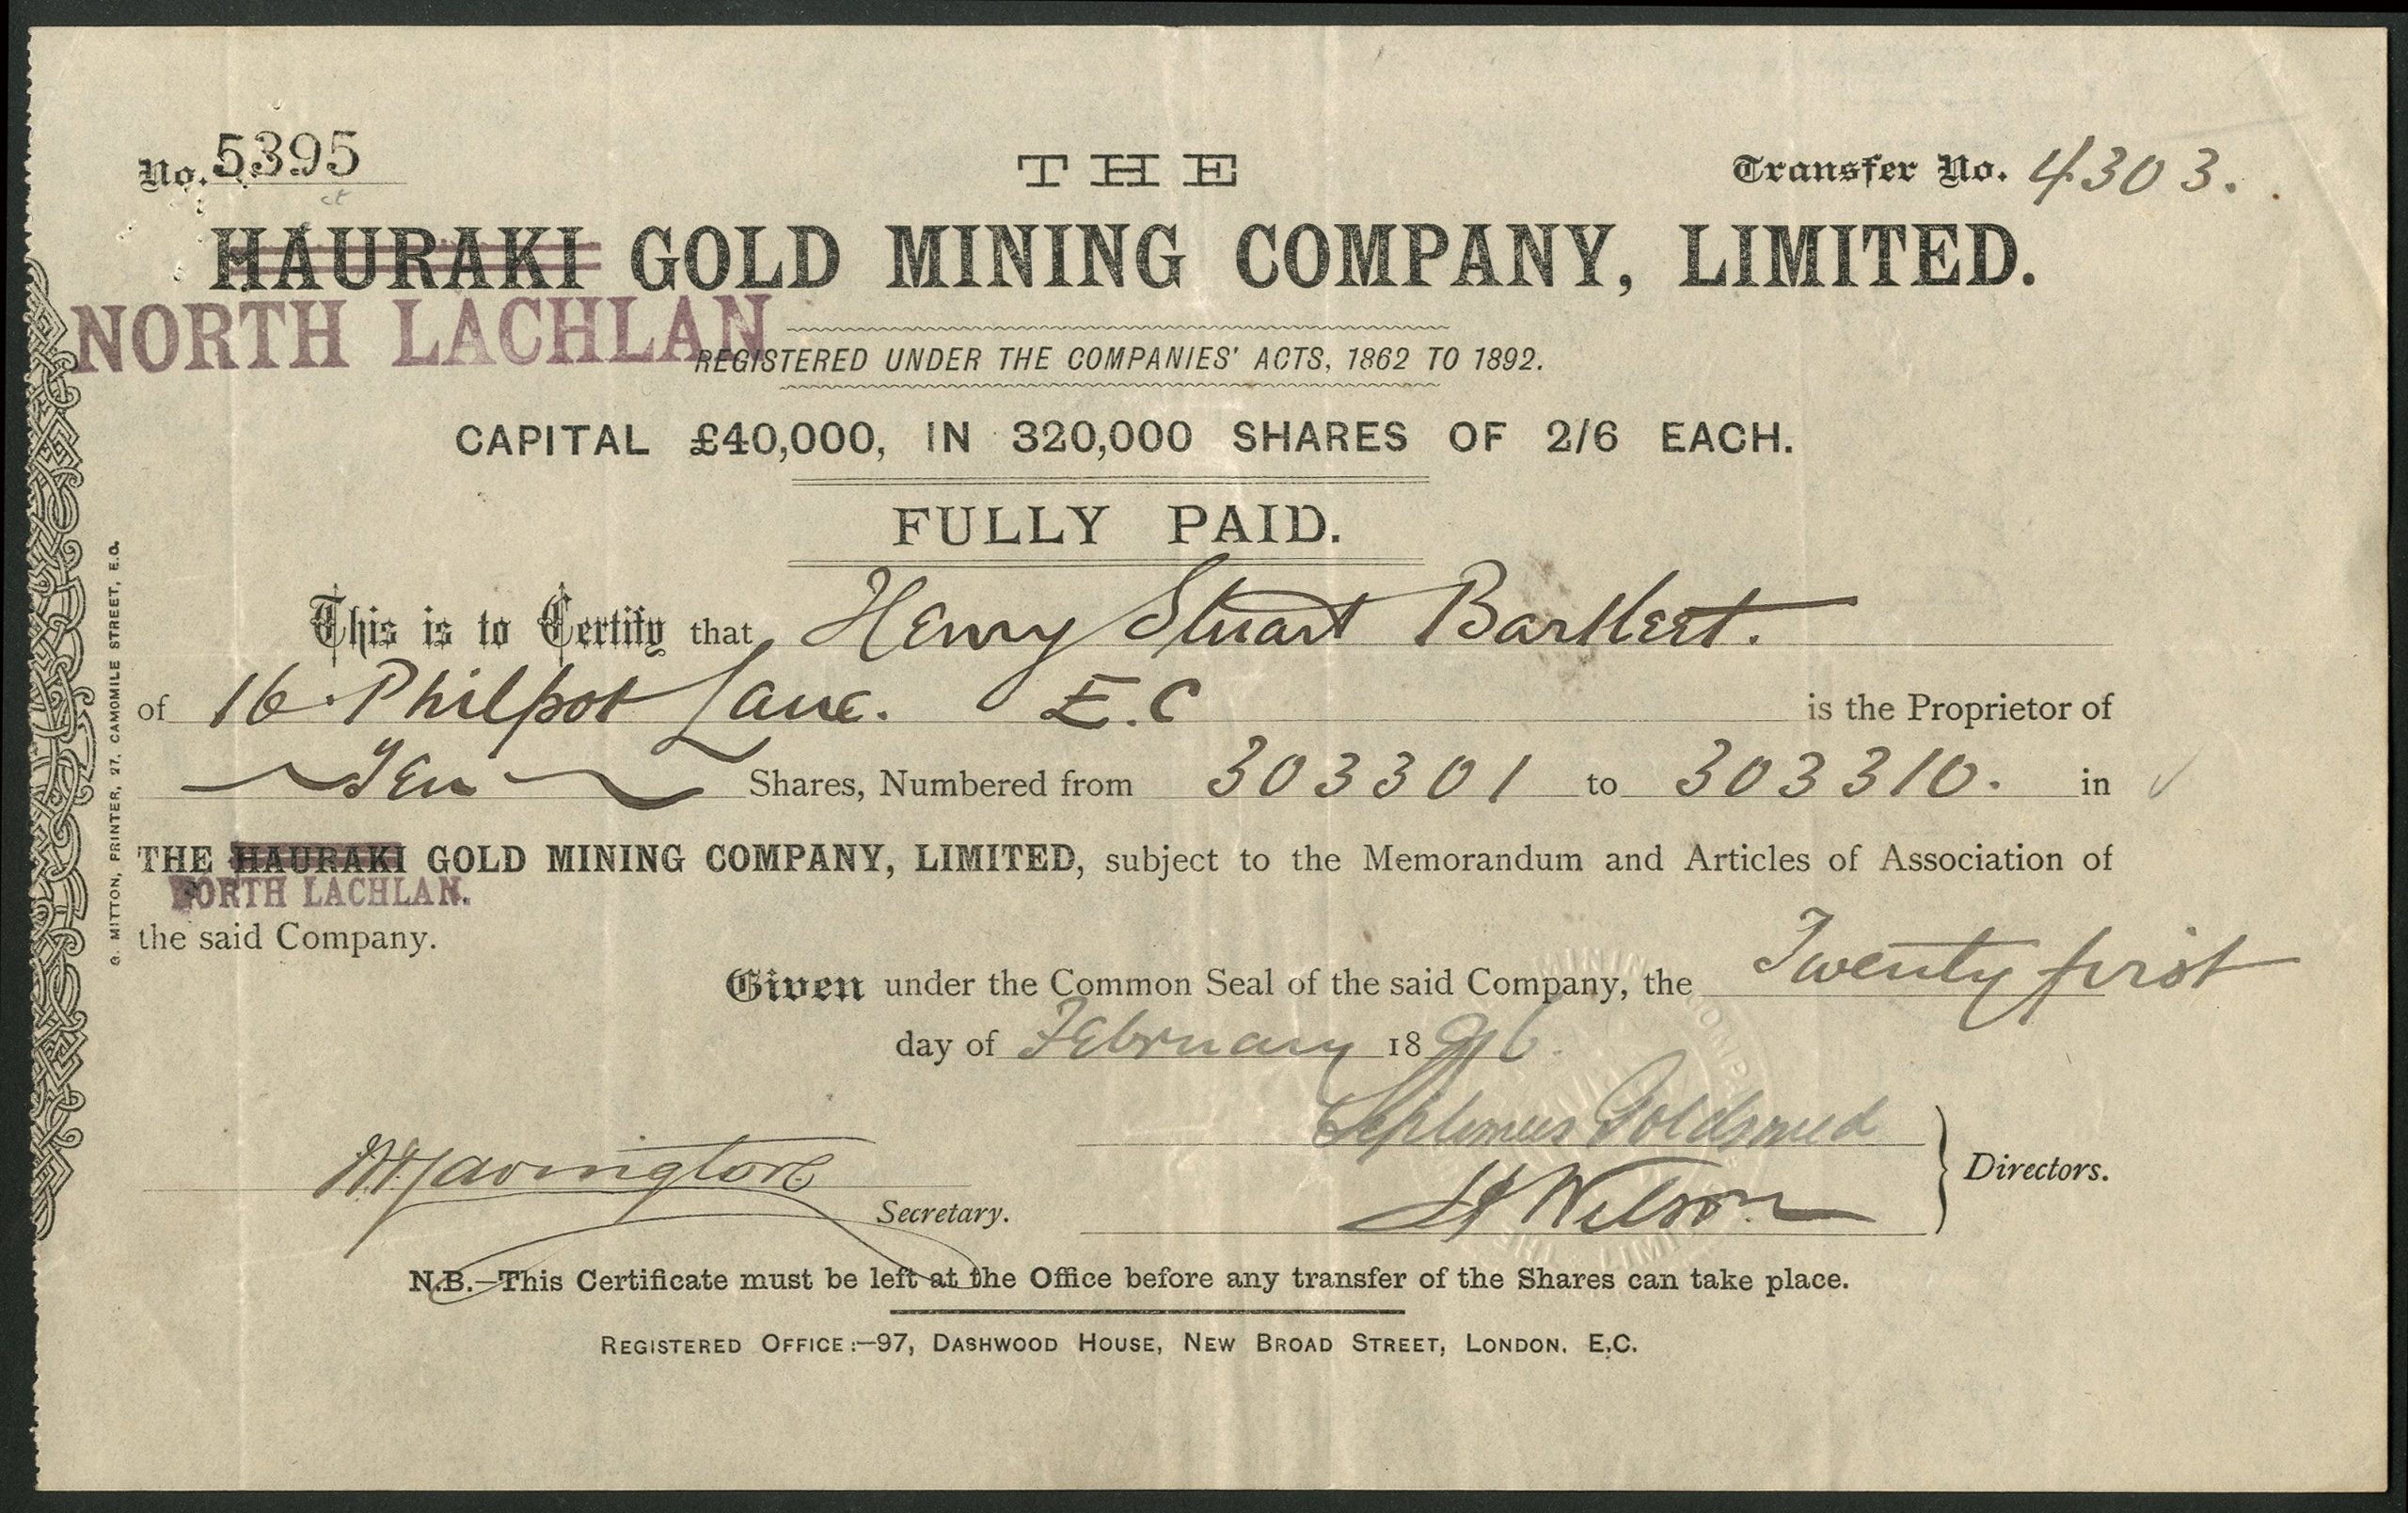 No. 5395
Transfer No. 4303.
THE
HAURAKI GOLD MINING COMPANY, LIMITED.
NORTH LACHLAN
REGISTERED UNDER THE COMPANIES' ACTS, 1862 TO 1892.
CAPITAL £40,000, IN 320,000 SHARES OF 2/6 EACH.
FULLY PAID.
This is to Certify that Henry Stuart Bartleet.
of 16 Philpot Lane. E.C is the Proprietor of
Ten Shares, Numbered from 303301 to 303310. in
THE HAURAKI GOLD MINING COMPANY, LIMITED, subject to the Memorandum and Articles of Association of
NORTH LACHLAN.
the said Company.
Given under the Common Seal of the said Company, the Twenty first
day of February 1896.
Septimus Goldsmid
Wilson
Directors.
Secretary.
N.B.—This Certificate must be left at the Office before any transfer of the Shares can take place.
REGISTERED OFFICE:—97, DASHWOOD HOUSE, NEW BROAD STREET, LONDON. E.C.
G. MITTON, PRINTER, 27, CAMOMILE STREET, E.C.